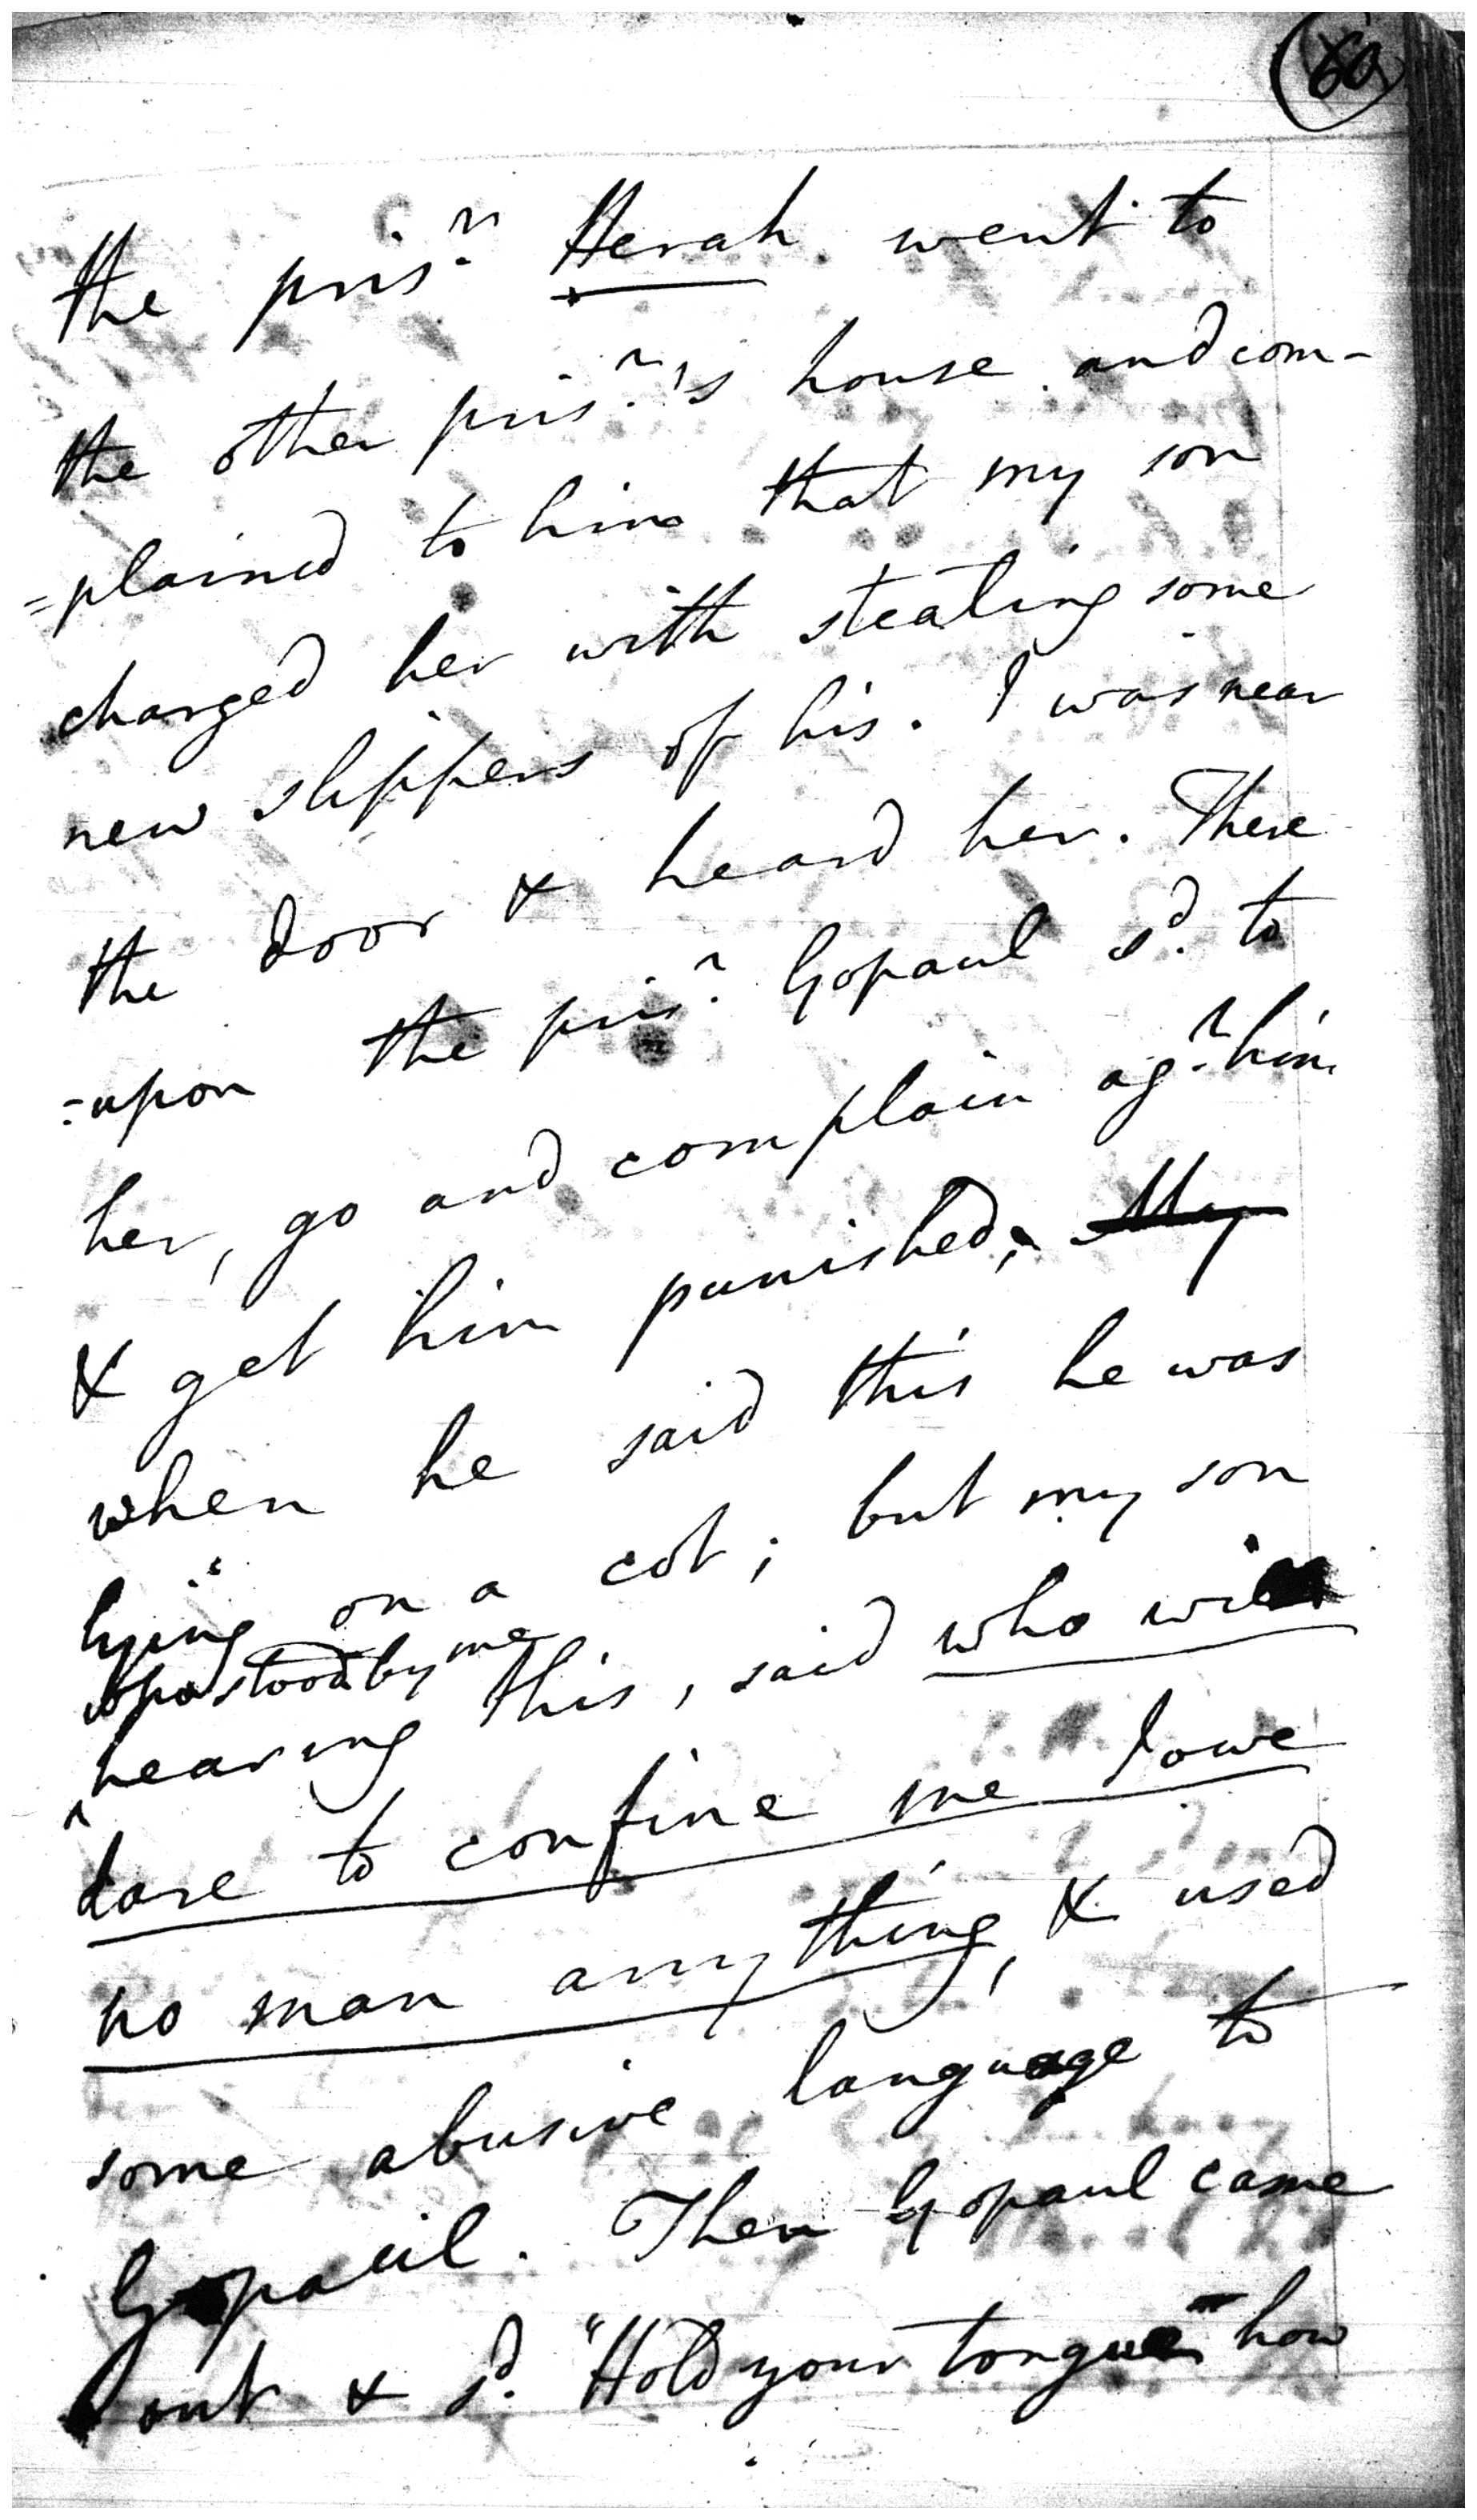 the pris.r Herah went to
the other pris.r's house and com-
=plained to him that my son
charged her with stealing some
new slippers of his. I was near
the door & heard her. There
=upon the pris.r Gopaul sd. to
her, go and complain ag.t him
& get him punished, My
when he said this he was
lying on a cot; but my son
stood by me
hearing this, said who will
dare to confine me I owe
no man any thing, & used
some abusive language to
Gopaul. Then Gopaul came
out & sd. "Hold your tongue how